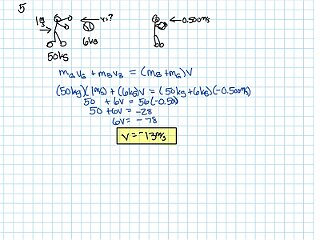 5
1m/s
v=?
0.500m/s
6kg
50kg
m_B v_B + m_B v_B = (m_B + m_B)V
(50kg)(1m/s) + (6kg)V = (50kg + 6kg)(-0.500m/s)
50 + 6V = 56(-0.50)
50 + 6V = -28
6V = -78
V = -13m/s